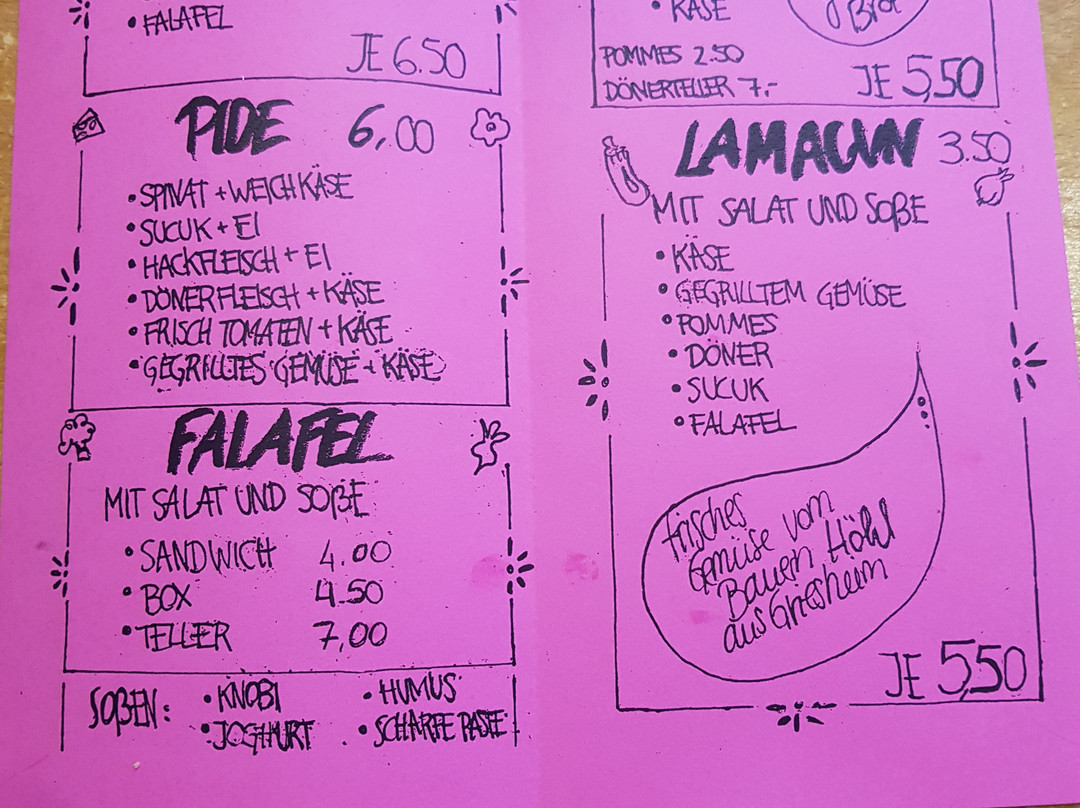 • FALAFEL
JE 6.50
PIDE 6,00
• SPINAT + WEICHKÄSE
• SUCUK + EI
• HACKFLEISCH + EI
• DÖNERFLEISCH + KÄSE
• FRISCH TOMATEN + KÄSE
• GEGRILLTES GEMÜSE + KÄSE
FALAFEL
MIT SALAT UND SOßE
• SANDWICH 4.00
• BOX 4.50
• TELLER 7,00
SOßEN:
• KNOBI
• HUMUS
• JOGHURT
• SCHARFE PASTE
• KÄSE
Brot
POMMES 2.50
DÖNERTELLER 7.-
JE 5,50
LAMACUN 3.50
MIT SALAT UND SOßE
• KÄSE
• GEGRILLTEM GEMÜSE
• POMMES
• DÖNER
• SUCUK
• FALAFEL
frisches
Gemüse vom
Bauern Höhl
aus Griesheim
JE 5,50